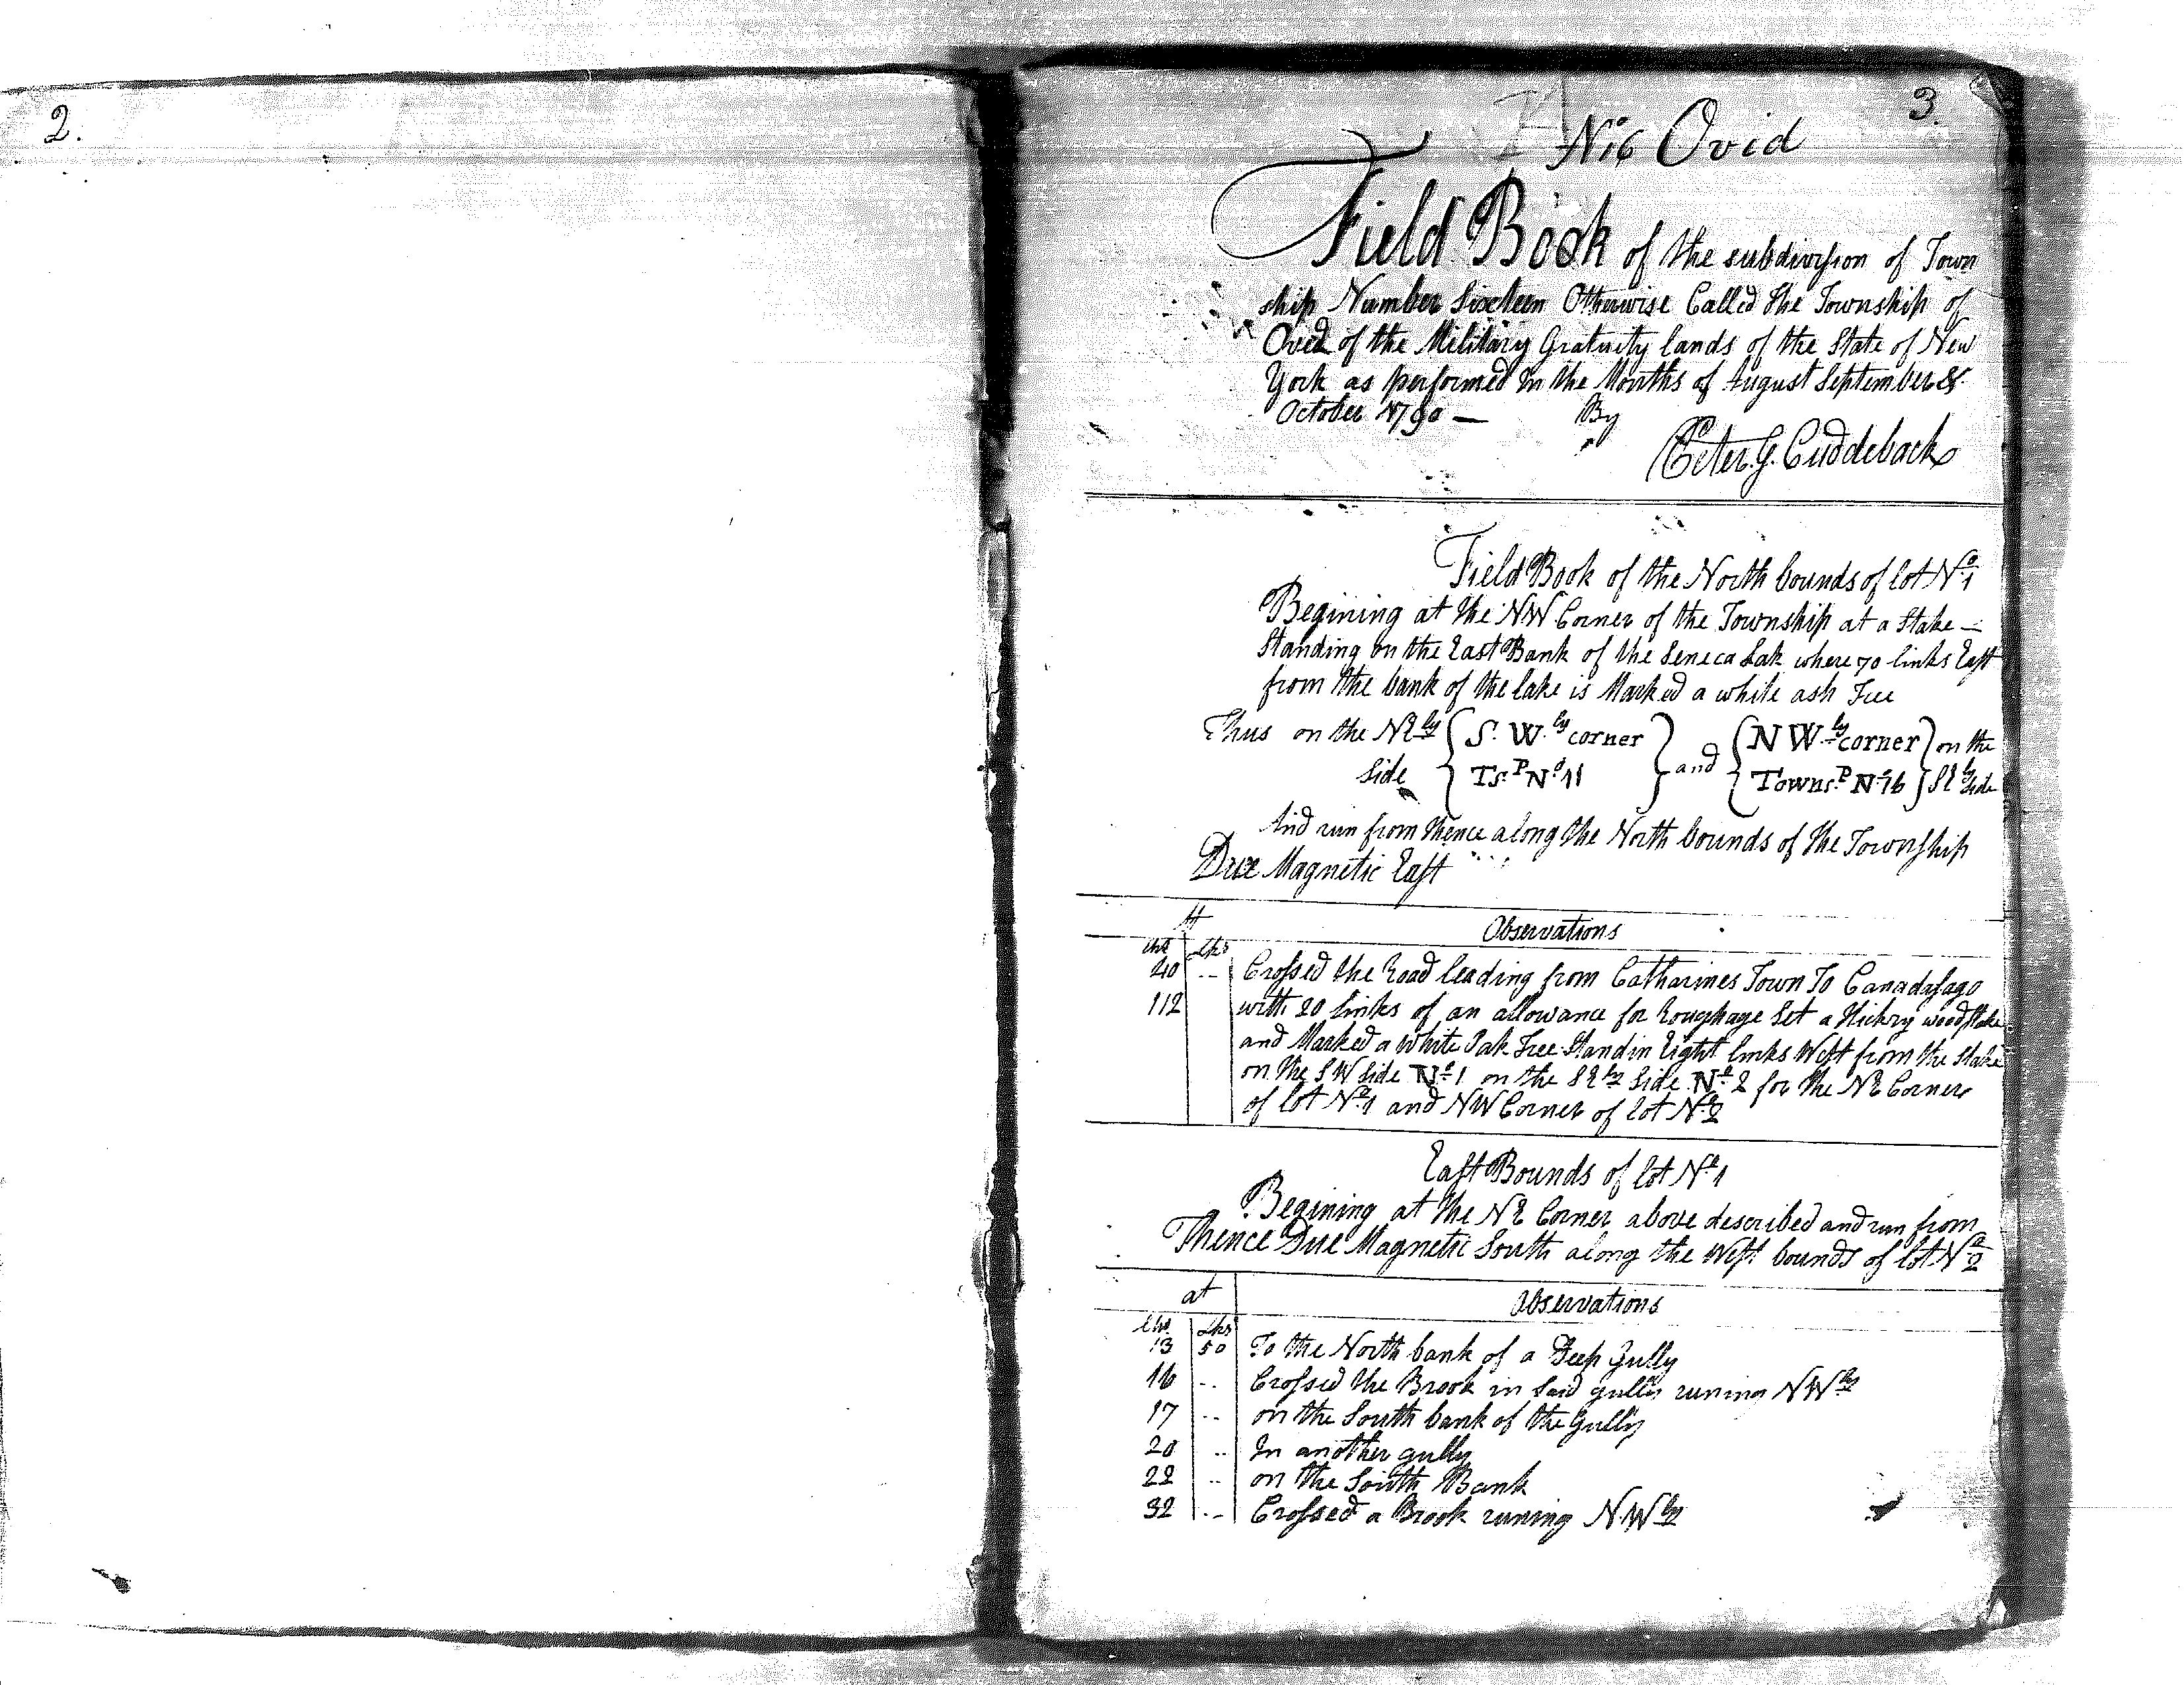 2.
3.
N16 Ovid
Field Book of the subdivision of Town
ship Number Sixteen Otherwise Called the Township of
Ovid of the Military Gratuity lands of the State of New
York as performed In the Months of August September &
October 1790 — By
Peter G. Cuddeback
Field Book of the North bounds of lot No 1
Begining at the NW Corner of the Township at a Stake —
Standing on the East Bank of the Seneca Lak where 70 links East
from the bank of the lake is Marked a white ash Tree
Thus on the NEly { S. W.ly corner } and { NW.ly corner } on the
Side { Ts.P No 11 } { Towns.P No 16 } SEly Side
And run from thence along the North bounds of the Township
Due Magnetic East
At Observations
chs Lks
40 .. Crossed the Road leading from Catharines Town To Canadasago
112 with 20 links of an allowance for Roughage Set a Hickry wood Stake
and Marked a White Oak Tree Standin Eight links West from the Stake
on the SW Side No 1 on the SEly Side No 2 for the NE Corner
of lot No 1 and NW Corner of lot No 2
East Bounds of lot No 1
Begining at the NE Corner above described and run from
Thence Due Magnetic South along the West bounds of lot No 2
at Observations
chs Lks
13 50 To the North bank of a Deep Gully
16 .. Crossed the Brook in Said gully runing NWly
17 .. on the South bank of the Gully
20 .. In another gully
22 .. on the South Bank
32 .. Crossed a Brook runing N.Wly